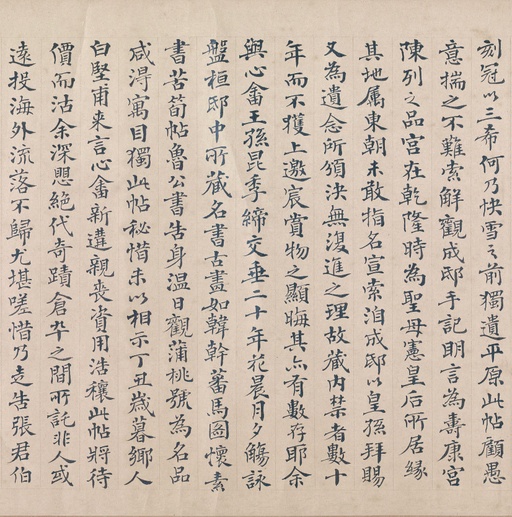 刻冠以三希何乃快雪之前獨遺平原此帖顧愚
意揣之不難索解觀成邸手記明言為壽康宮
陳列之品宮在乾隆時為聖母憲皇后所居緣
其地屬東朝未敢指名宣索洎成邸以皇孫拜賜
又為遺念所頒決無復進之理故藏內禁者數十
年而不獲上邀宸賞物之顯晦其亦有數存耶余
與心畬王孫昆季締交垂二十年花晨月夕觴詠
盤桓邸中所藏名書古畫如韓幹蕃馬圖懷素
書苦筍帖魯公書告身溫日觀蒲桃號為名品
咸淂寓目獨此帖秘惜未以相示丁丑歲暮鄉人
白堅甫来言心畬新遘親喪資用浩穰此帖將待
價而沽余深愳絕代奇蹟倉卒之間所託非人或
遠投海外流落不歸尤堪嗟惜乃走告張君伯